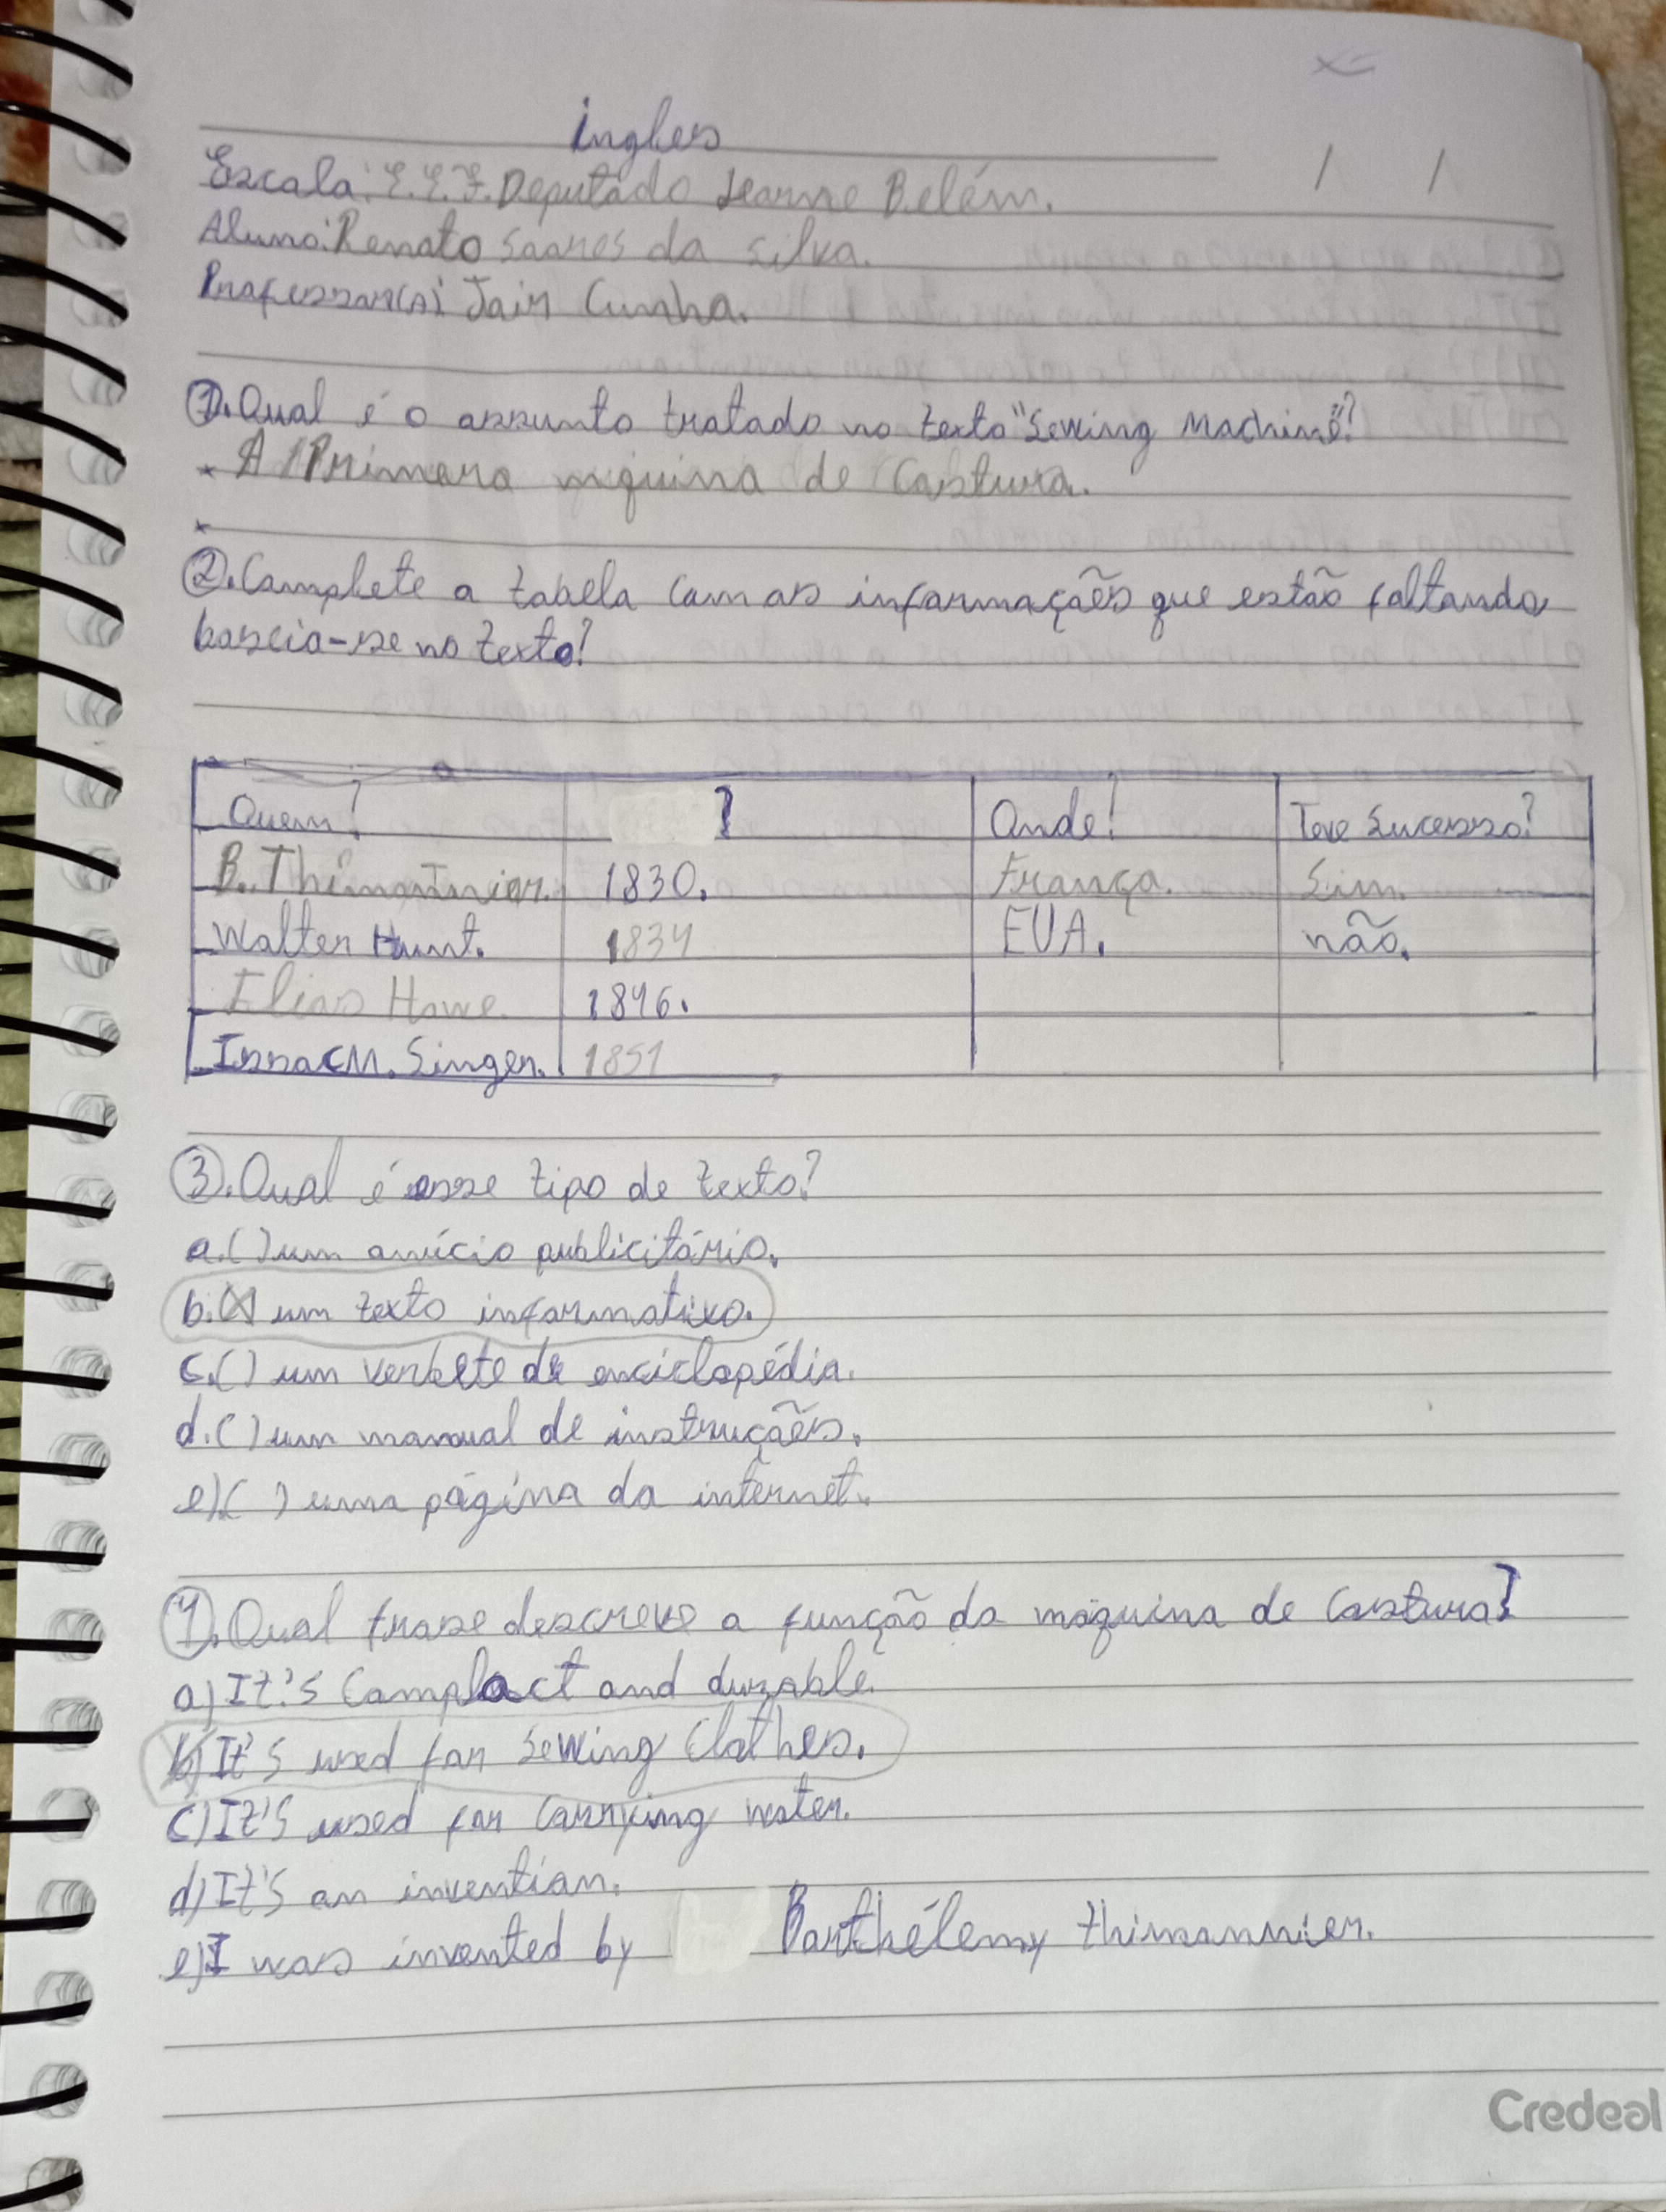 ingles
Escola: E.E.F. Deputado Learne Belém.
Aluno: Renato Soares da silva.
Professor(A): Jair Cunha.
1. Qual é o assunto tratado no texto "Sewing Machine"?
* A Primera mquina de Costura.
*
2. Complete a tabela com as informações que estão faltando
baseia-se no texto?
Quem? ? Onde? Teve Sucesso?
B. Thimonnier. 1830. França. Sim.
Walter Hunt. 1834 EUA. não.
Elias Howe. 1846.
Issac M. Singer. 1851
3. Qual é esse tipo de texto?
a. ( ) um anúcio publicitário.
b. (X) um texto informativo.
c. ( ) um verbete de enciclopédia.
d. ( ) um manoual de instruções.
e) ( ) uma página da internet.
4. Qual frase descreve a função da máquina de Costura?
a) It's Complact and durzable.
b) It's used for sewing Clothes.
c) It's used for Carrying water.
d) It's an invention.
e) I was invented by Barthélemy thimonnier.
Credeal